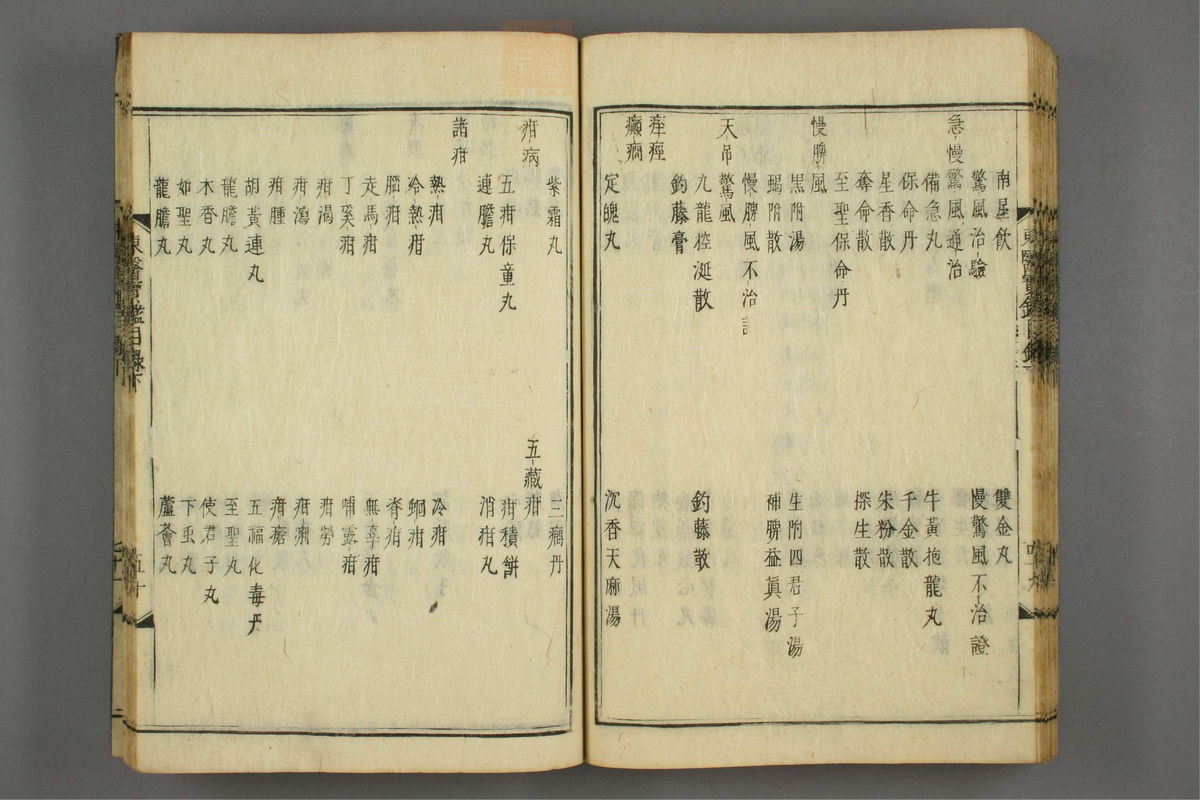 南星飲　雙金丸
驚風治驗　慢驚風不治證
急慢驚風通治
備急丸　牛黃抱龍丸
保命丹　千金散
星香散　朱粉散
奪命散　探生散
至聖保命丹
慢脾風
黑附湯　生附四君子湯
蝎附散　補脾益眞湯
慢脾風不治證
天吊驚風
九龍控涎散　鈞藤散
鈞藤膏
痓痙
癲癇
定魄丸　沉香天麻湯
紫霜丸　三癇丹
疳病　五藏疳
五疳保童丸　疳積餅
連膽丸　消疳丸
諸疳
熱疳　冷疳
冷熱疳　蛔疳
腦疳　脊疳
走馬疳　無辜疳
丁奚疳　哺露疳
疳渴　疳勞
疳瀉　疳痢
疳腫　疳瘡
胡黃連丸　五福化毒丹
龍膽丸　至聖丸
木香丸　使君子丸
如聖丸　下虫丸
龍膽丸　蘆薈丸
東醫寶鑑目錄下
五十